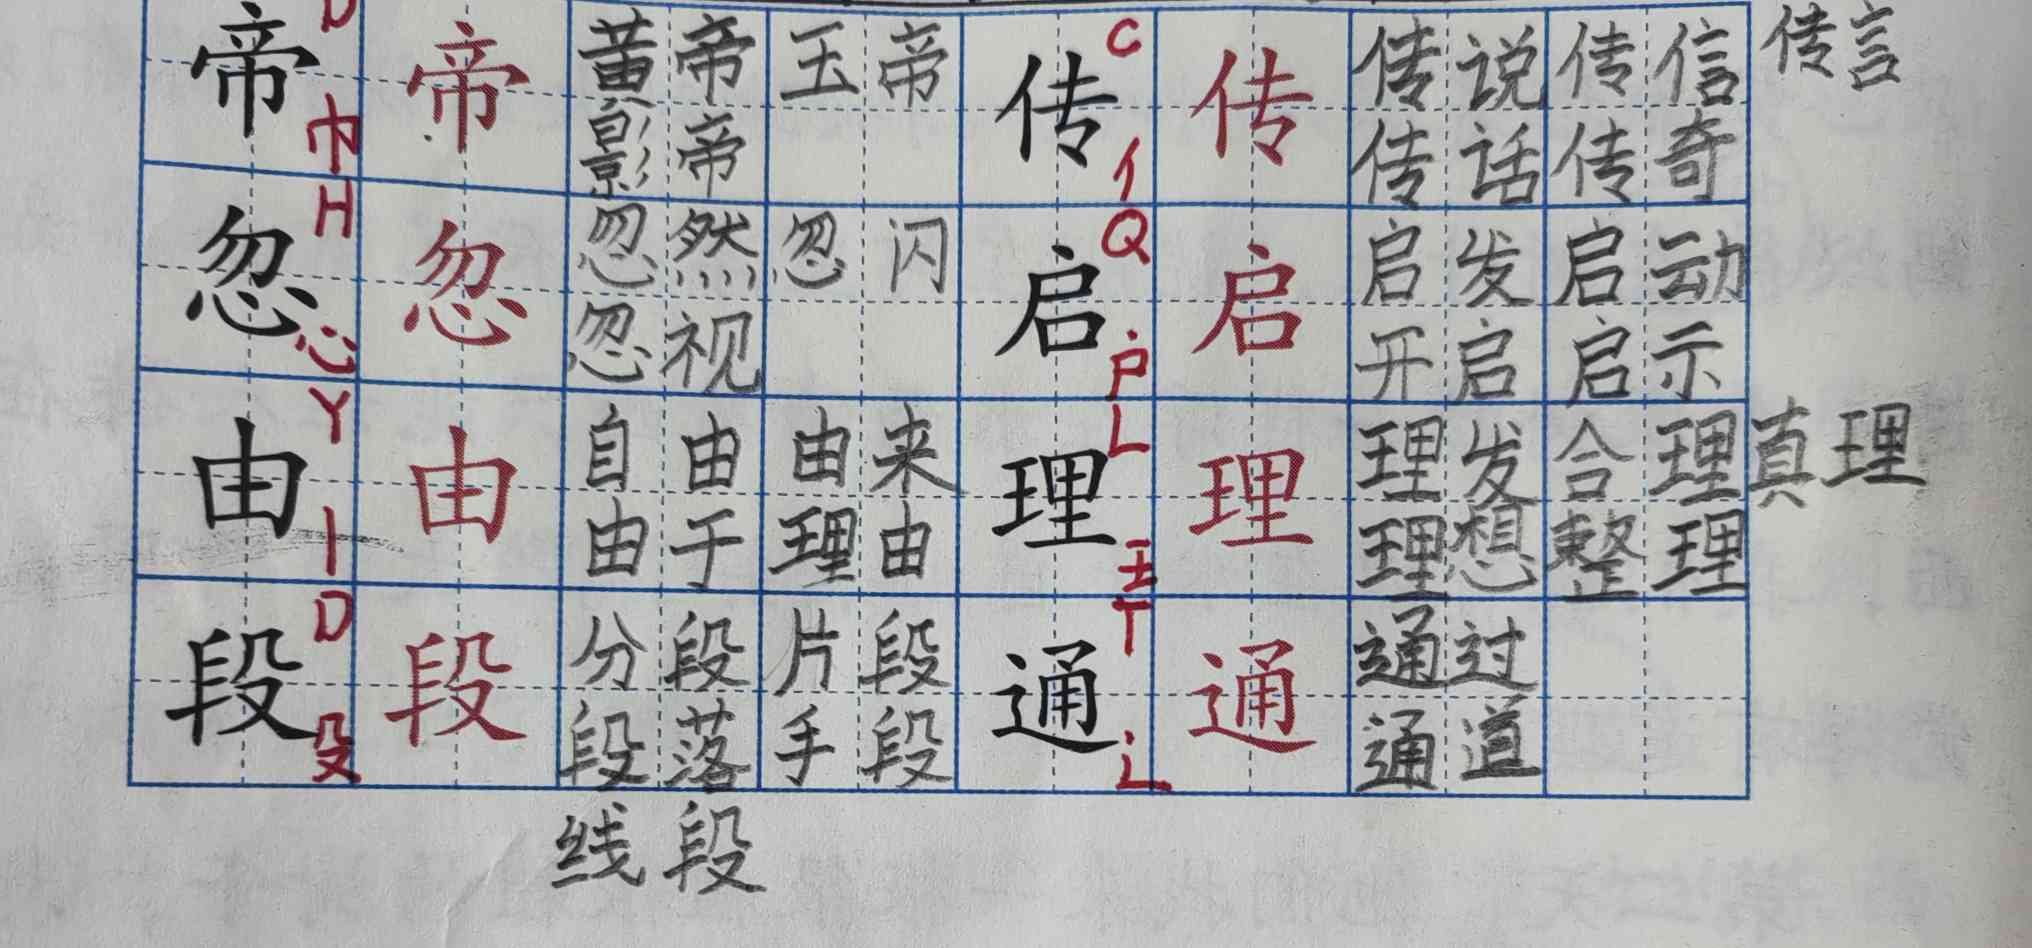 帝 D 巾 帝 黄帝 玉帝 传 C 亻 传 传说 传信 传言
影帝 传话 传奇
忽 H 心 忽 忽然 忽闪 启 Q 户 启 启发 启动
忽视 开启 启示
由 Y 丨 由 自由 由来 理 L 王 理 理发 合理 真理
由于 理由 理想 整理
段 D 殳 段 分段 片段 通 T 辶 通 通过
段落 手段 通道
线段